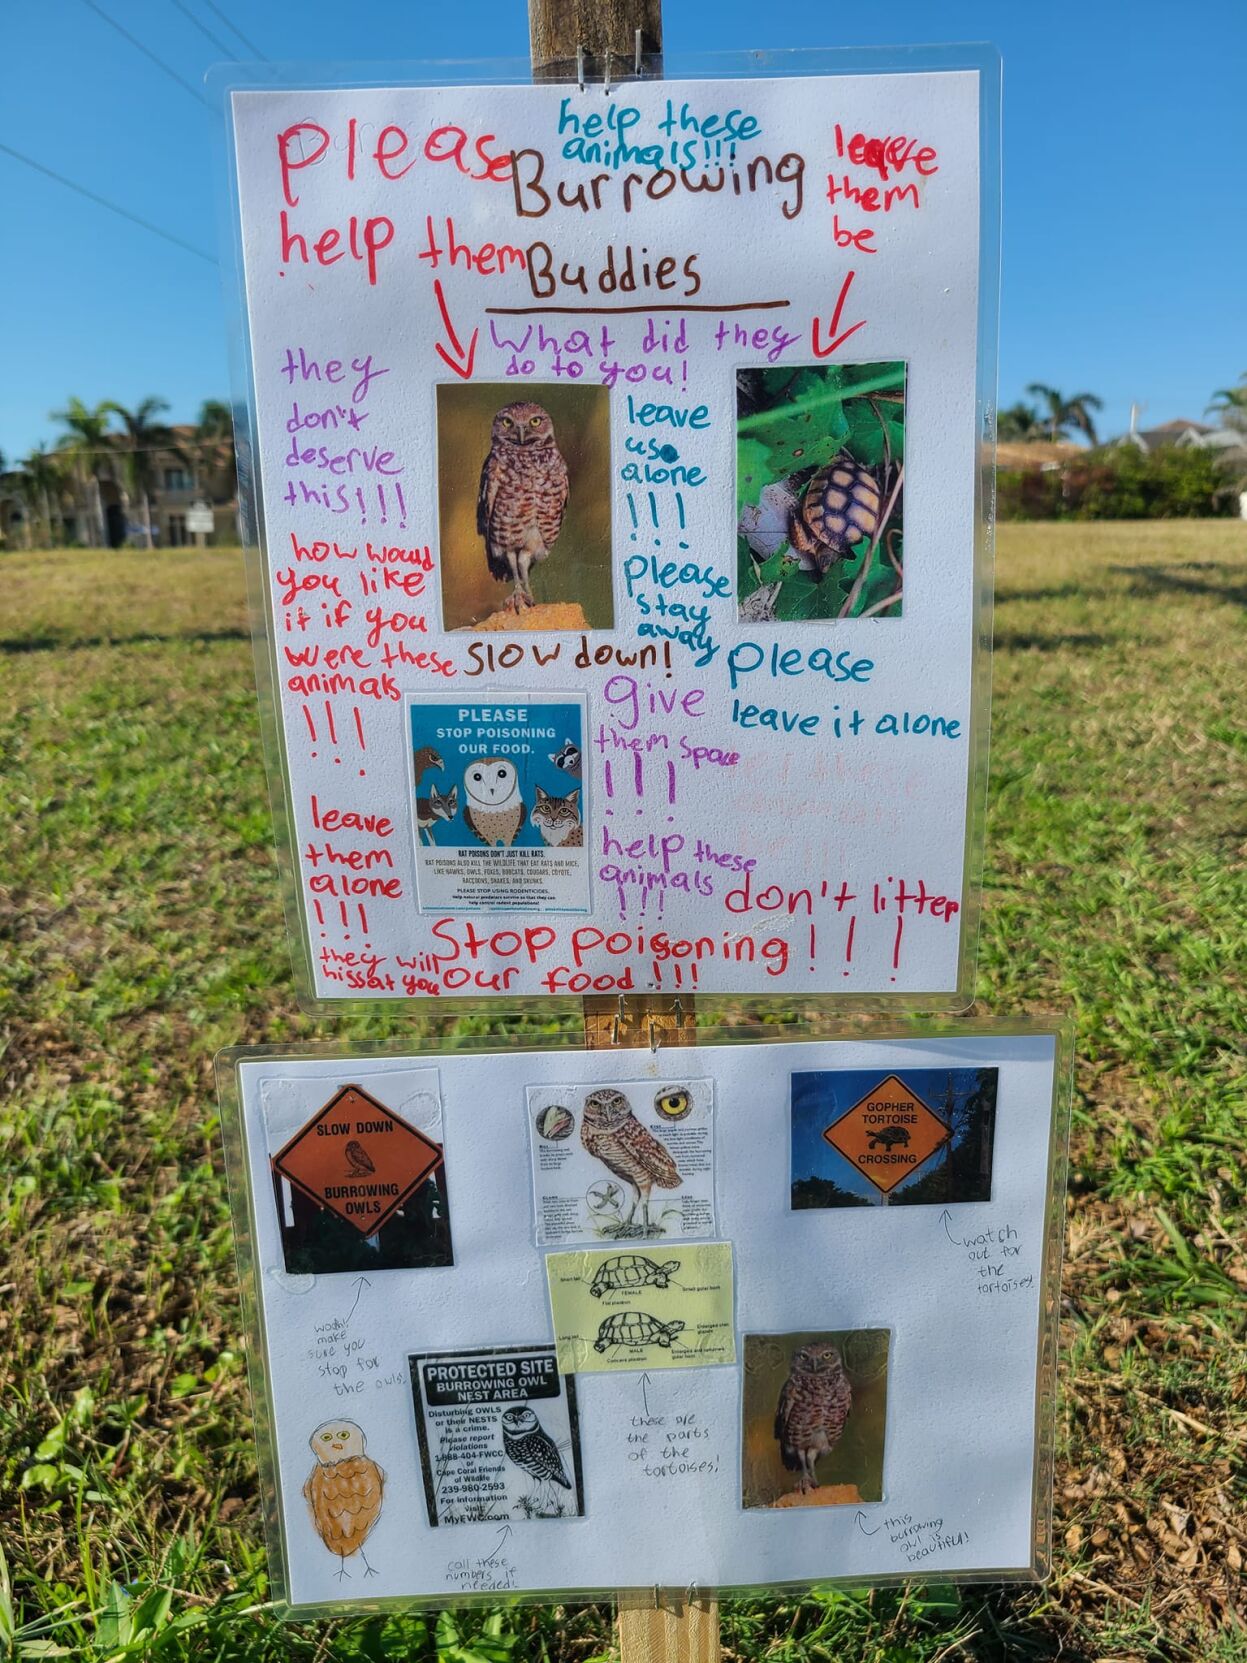 please
help them
help these
animals!!!
Burrowing
Buddies
leave
them
be
What did they
do to you!
they
don't
deserve
this!!!
leave
us
alone
!!!
please
stay
away
how would
you like
it if you
were these
animals
!!!
slow down!
please
leave it alone
give
them space
!!!
PLEASE
STOP POISONING
OUR FOOD.
RAT POISONS DON'T JUST KILL RATS.
RAT POISONS ALSO KILL THE WILDLIFE THAT EAT RATS AND MICE,
LIKE HAWKS, OWLS, FOXES, BOBCATS, COUGARS, COYOTE,
RACCOONS, SNAKES, AND SKUNKS.
PLEASE STOP USING RODENTICIDES.
Help natural predators survive so that they can
help control rodent populations!
leave
them
alone
!!!
help these
animals
!!!
don't litter
!!!
they will
hiss at you
Stop poisoning
our food!!!
SLOW DOWN
BURROWING
OWLS
make
sure you
stop for
the owls!
GOPHER
TORTOISE
CROSSING
watch
out for
the
tortoises!
Short tail
Small gular horn
FEMALE
Flat plastron
Long tail
MALE
Concave plastron
these are
the parts
of the
tortoises!
PROTECTED SITE
BURROWING OWL
NEST AREA
Disturbing OWLS
or their NESTS
is a crime.
Please report
violations
1-888-404-FWCC
or
Cape Coral Friends
of Wildlife
239-980-2593
For information
visit:
MyFWC.com
call these
numbers if
needed!
this
burrowing
owl is
beautiful!